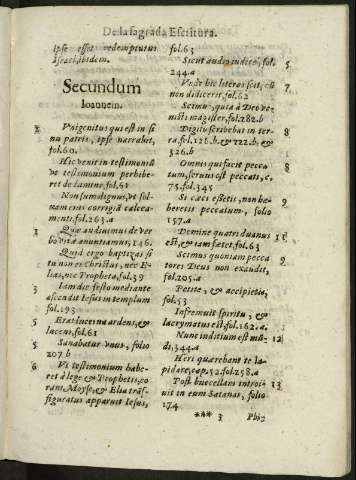 De la sagrada Escritura.
ipse esset redempturus
Israel, ibidem.
Secundum
Ioannem.
Vnigenitus qui est in si
nu patris, ipse narrabit,
fol.60.
Hic venit in testimoniũ
vt testimonium perhibe
ret de lumine, fol.61
Non sum dignus, vt sol-
uam eius corrigiã calcea-
menti. fol.263.a
1 Quæ audiuimus de ver
bo vitæ anuntiamus, 146.
Quid ergo baptizas si
tu non es Christus, nec E-
lias, nec Propheta, fol.59
3 Iam die festo mediante
ascendit Iesus in templum
fol.193
5 Erat lucerna ardens, &
lucens, fol.61
5 Sanabatur vnus, folio
207 b
6 Vt testimonium habe-
ret à lege, & Prophetis, co
ram Moyse, & Elia trãs-
figuratus apparuit Iesus,
fol.63
Sicut audio iudico, fol. 5
244.a
Vnde hic literas scit, cũ 7
non didicerit, fol.62
Scimus, quia à Deo ve-
nisti magister, fol.282.b
Digito scribebat in ter- 8
ra. fol.126.b. & 222.b. &
326.b
Omnis qui facit pecca 8
tum, seruus est peccati, c,
75. fol.345
Si cæci essetis, non ha- 9
beretis peccatum, folio
157.a
Domine quatriduanus 11
est, & iam fœtet. fol.63
Scimus quoniam pecca 9
tores Deus non exaudit,
fol.205.a
Petite, & accipietis,
fol.53
Infremuit spiritu, &
lacrymatus est. fol.162.a.
Nunc inditium est mũ-
di, 344.a
Heri quærebant te la-
pidare, cap.52. fol.258.a
Post buccellam introi- 13
uit in eum Satanas, folio
174
*** 3 Phi-